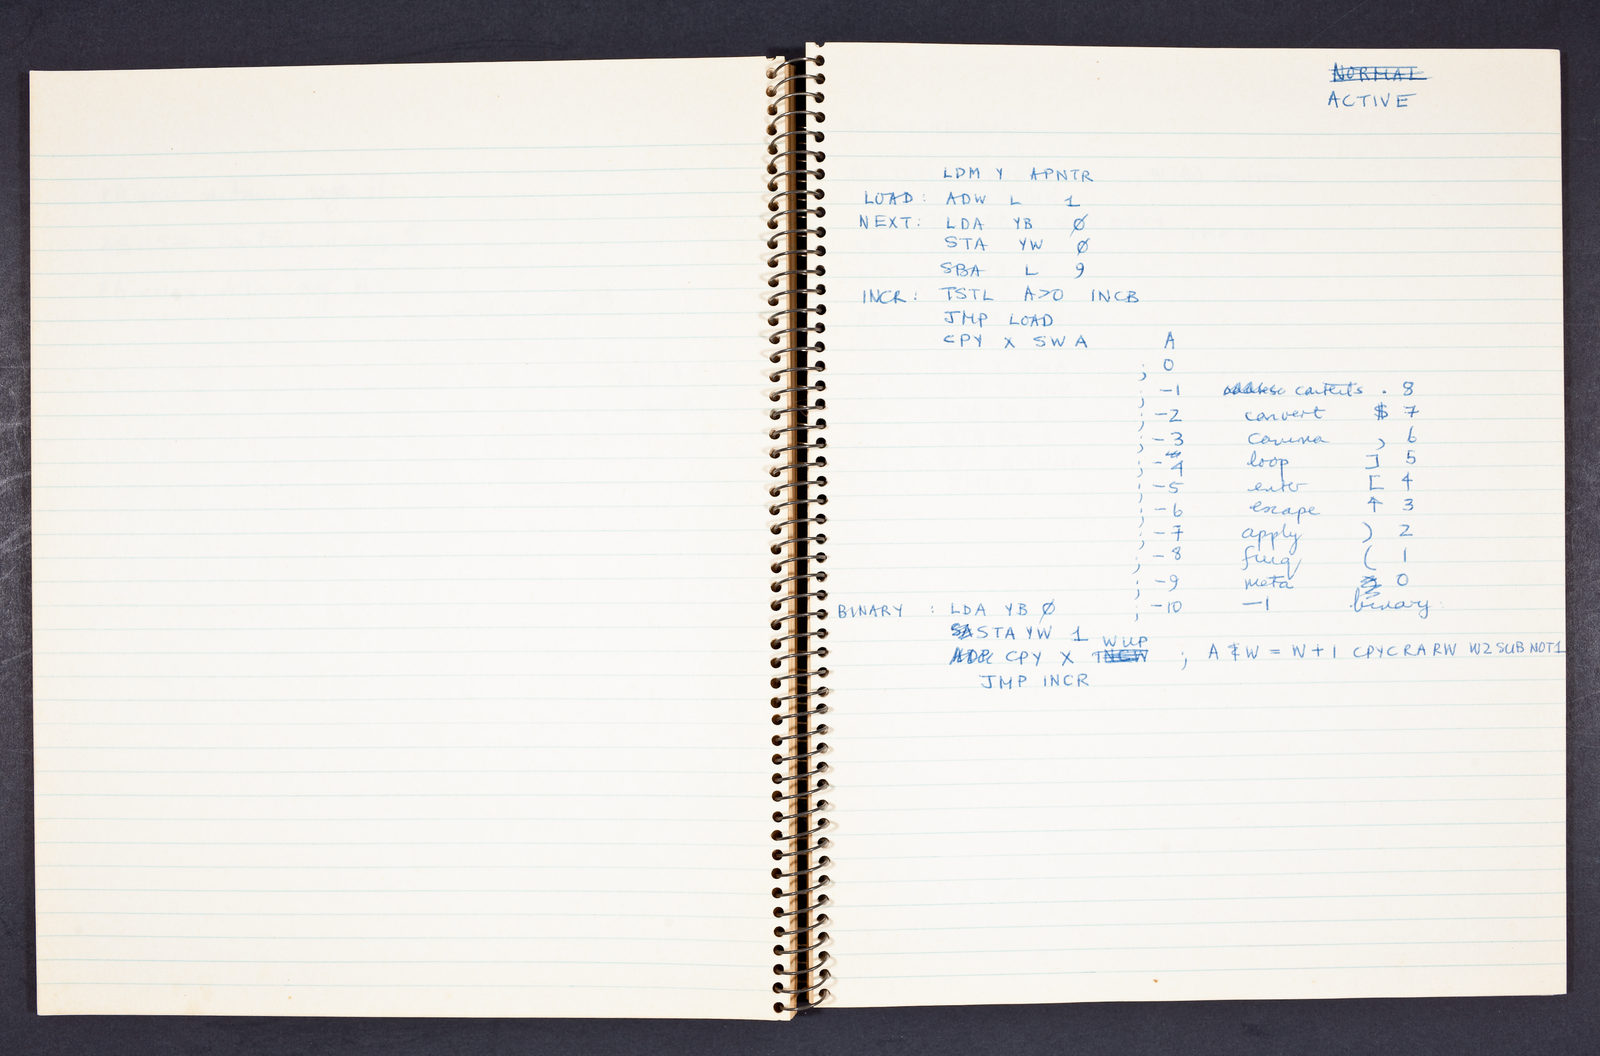 NORMAL
ACTIVE
LDM Y APNTR
LOAD: ADW L 1
NEXT: LDA YB Ø
STA YW Ø
SBA L 9
INCR: TSTL A>0 INCB
JMP LOAD
CPY X SWA A
; 0
; -1 contents . 8
; -2 convert $ 7
; -3 comma , 6
; -4 loop ] 5
; -5 enter [ 4
; -6 escape ↑ 3
; -7 apply ) 2
; -8 ( 1
; -9 meta 0
BINARY : LDA YB Ø ; -10 -1 binary
STA YW 1
WUP
CPY X ; A & W = W + 1 CPYCRARW W2SUBNOT1
JMP INCR